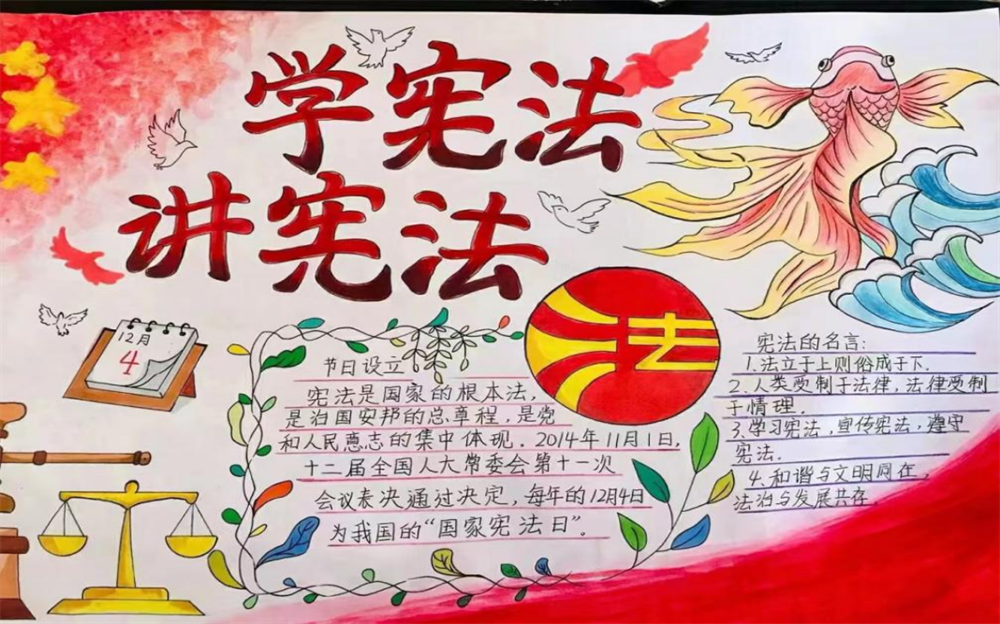 学宪法
讲宪法
12月
4
法
节日设立
宪法是国家的根本法,
是治国安邦的总章程,是党
和人民意志的集中体现。2014年11月1日,
十二届全国人大常委会第十一次
会议表决通过决定,每年的12月4日
为我国的“国家宪法日”。
宪法的名言:
1.法立于上则俗成于下.
2.人类受制于法律,法律受制
于情理.
3.学习宪法,宣传宪法,遵守
宪法.
4.和谐与文明同在,
法治与发展共存.